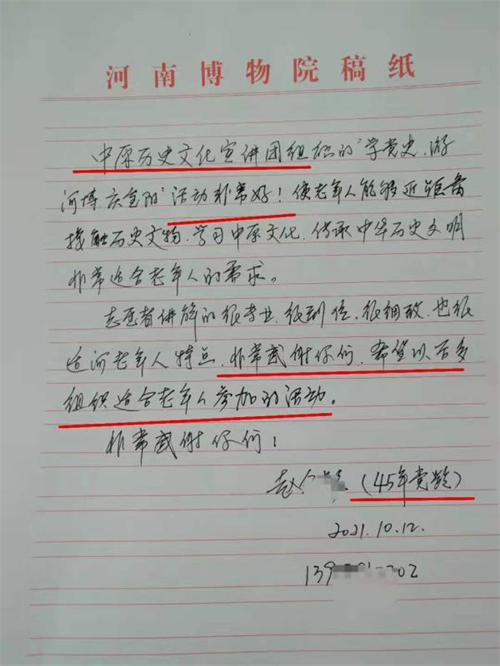 河南博物院稿纸
中原历史文化宣讲团组织的“学党史、游
河博、庆重阳”活动非常好！使老年人能够近距离
接触历史文物、学习中原文化、传承中华历史文明
非常适合老年人的需求。
志愿者讲解的很专业、很到位、很细致、也很
适合老年人特点，非常感谢你们，希望以后多
组织适合老年人参加的活动。
非常感谢你们！
赵（45年党龄）
2021.10.12.
139 02